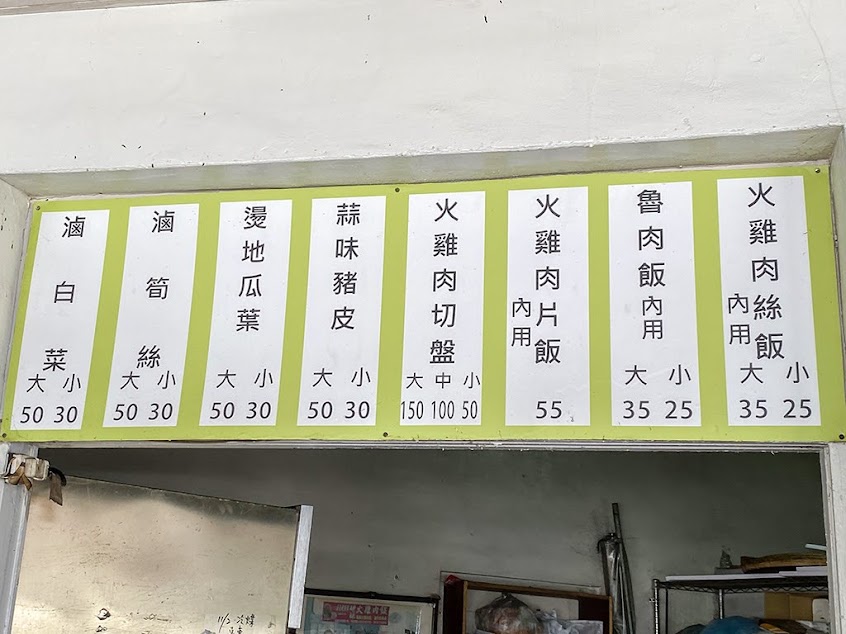 火雞肉絲飯
內用
大 小
35 25
魯肉飯
內用
大 小
35 25
火雞肉片飯
內用
55
火雞肉切盤
大 中 小
150 100 50
蒜味豬皮
大 小
50 30
燙地瓜葉
大 小
50 30
滷筍絲
大 小
50 30
滷白菜
大 小
50 30
火雞肉飯